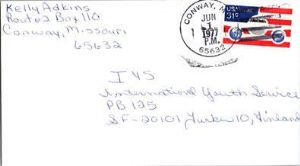 Kelly Adkins
Route 2 Box 110
Conway, Missouri
65632
CONWAY, M
JUN
1
1977
P.M.
65632
31c
I Y S
International Youth Service
PB 125
SF-20101 Turku 10, Finland